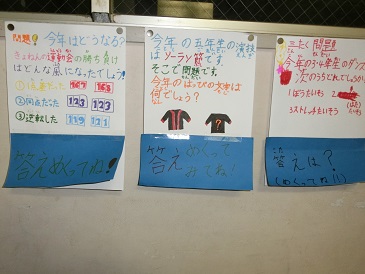 問題! 今年はどうなる?
きょねんの運動会の勝ち負け
はどんな風になったでしょう!
①1点差だった
②同点だった 123 123
③逆転した 119 121
答えめくってね!
今年の五年生の演技
はソーラン節です。
そこで問題です。
今年のはっぴの文字は
何でしょう?
?
答えめくって
みてね!
三たく問題!!
今年の3・4年生のダンス
次のうちどれでしょう
1ぼうたいそう
3ストレッチたいそう
答えは?
(めくってね!!)